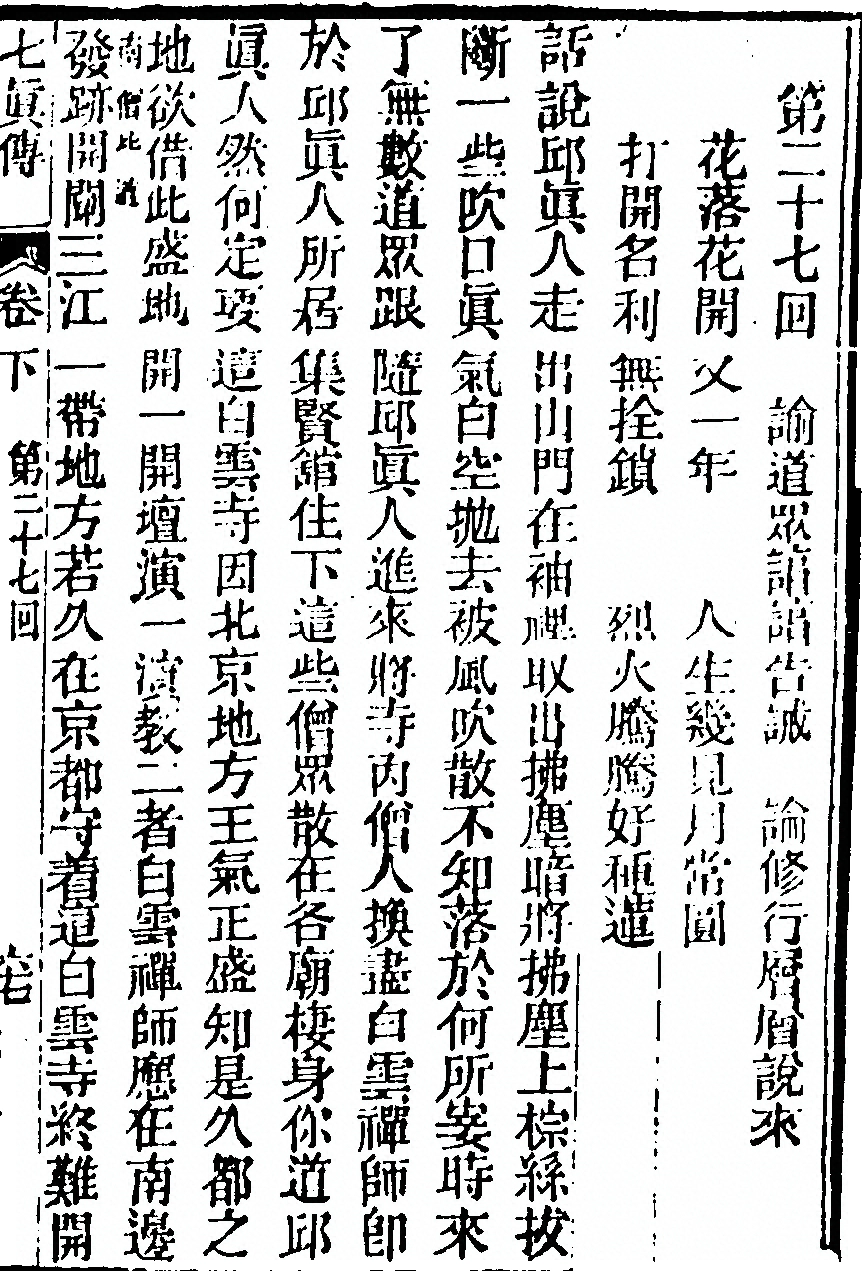 第二十七回　諭道眾諄諄告誡　論修行層層說來
花落花開又一年　人生幾見月常圓
打開名利無拴鎖　烈火騰騰好種蓮
話說邱眞人走出山門在袖裡取出拂塵暗將拂塵上棕絲拔
斷一些吹口眞氣白空拋去被風吹散不知落於何所霎時來
了無數道眾跟隨邱眞人進來將寺內僧人換盡白雲禪師卽
於邱眞人所居集賢舘住下這些僧眾散在各廟棲身你道邱
眞人然何定要這白雲寺因北京地方王氣正盛知是久都之
地欲借此盛地開一開壇演一演教二者白雲禪師應在南邊
南僧北道
發跡開闡三江一帶地方若久在京都守着這白雲寺終難開
七眞傳　卷下　第二十七回